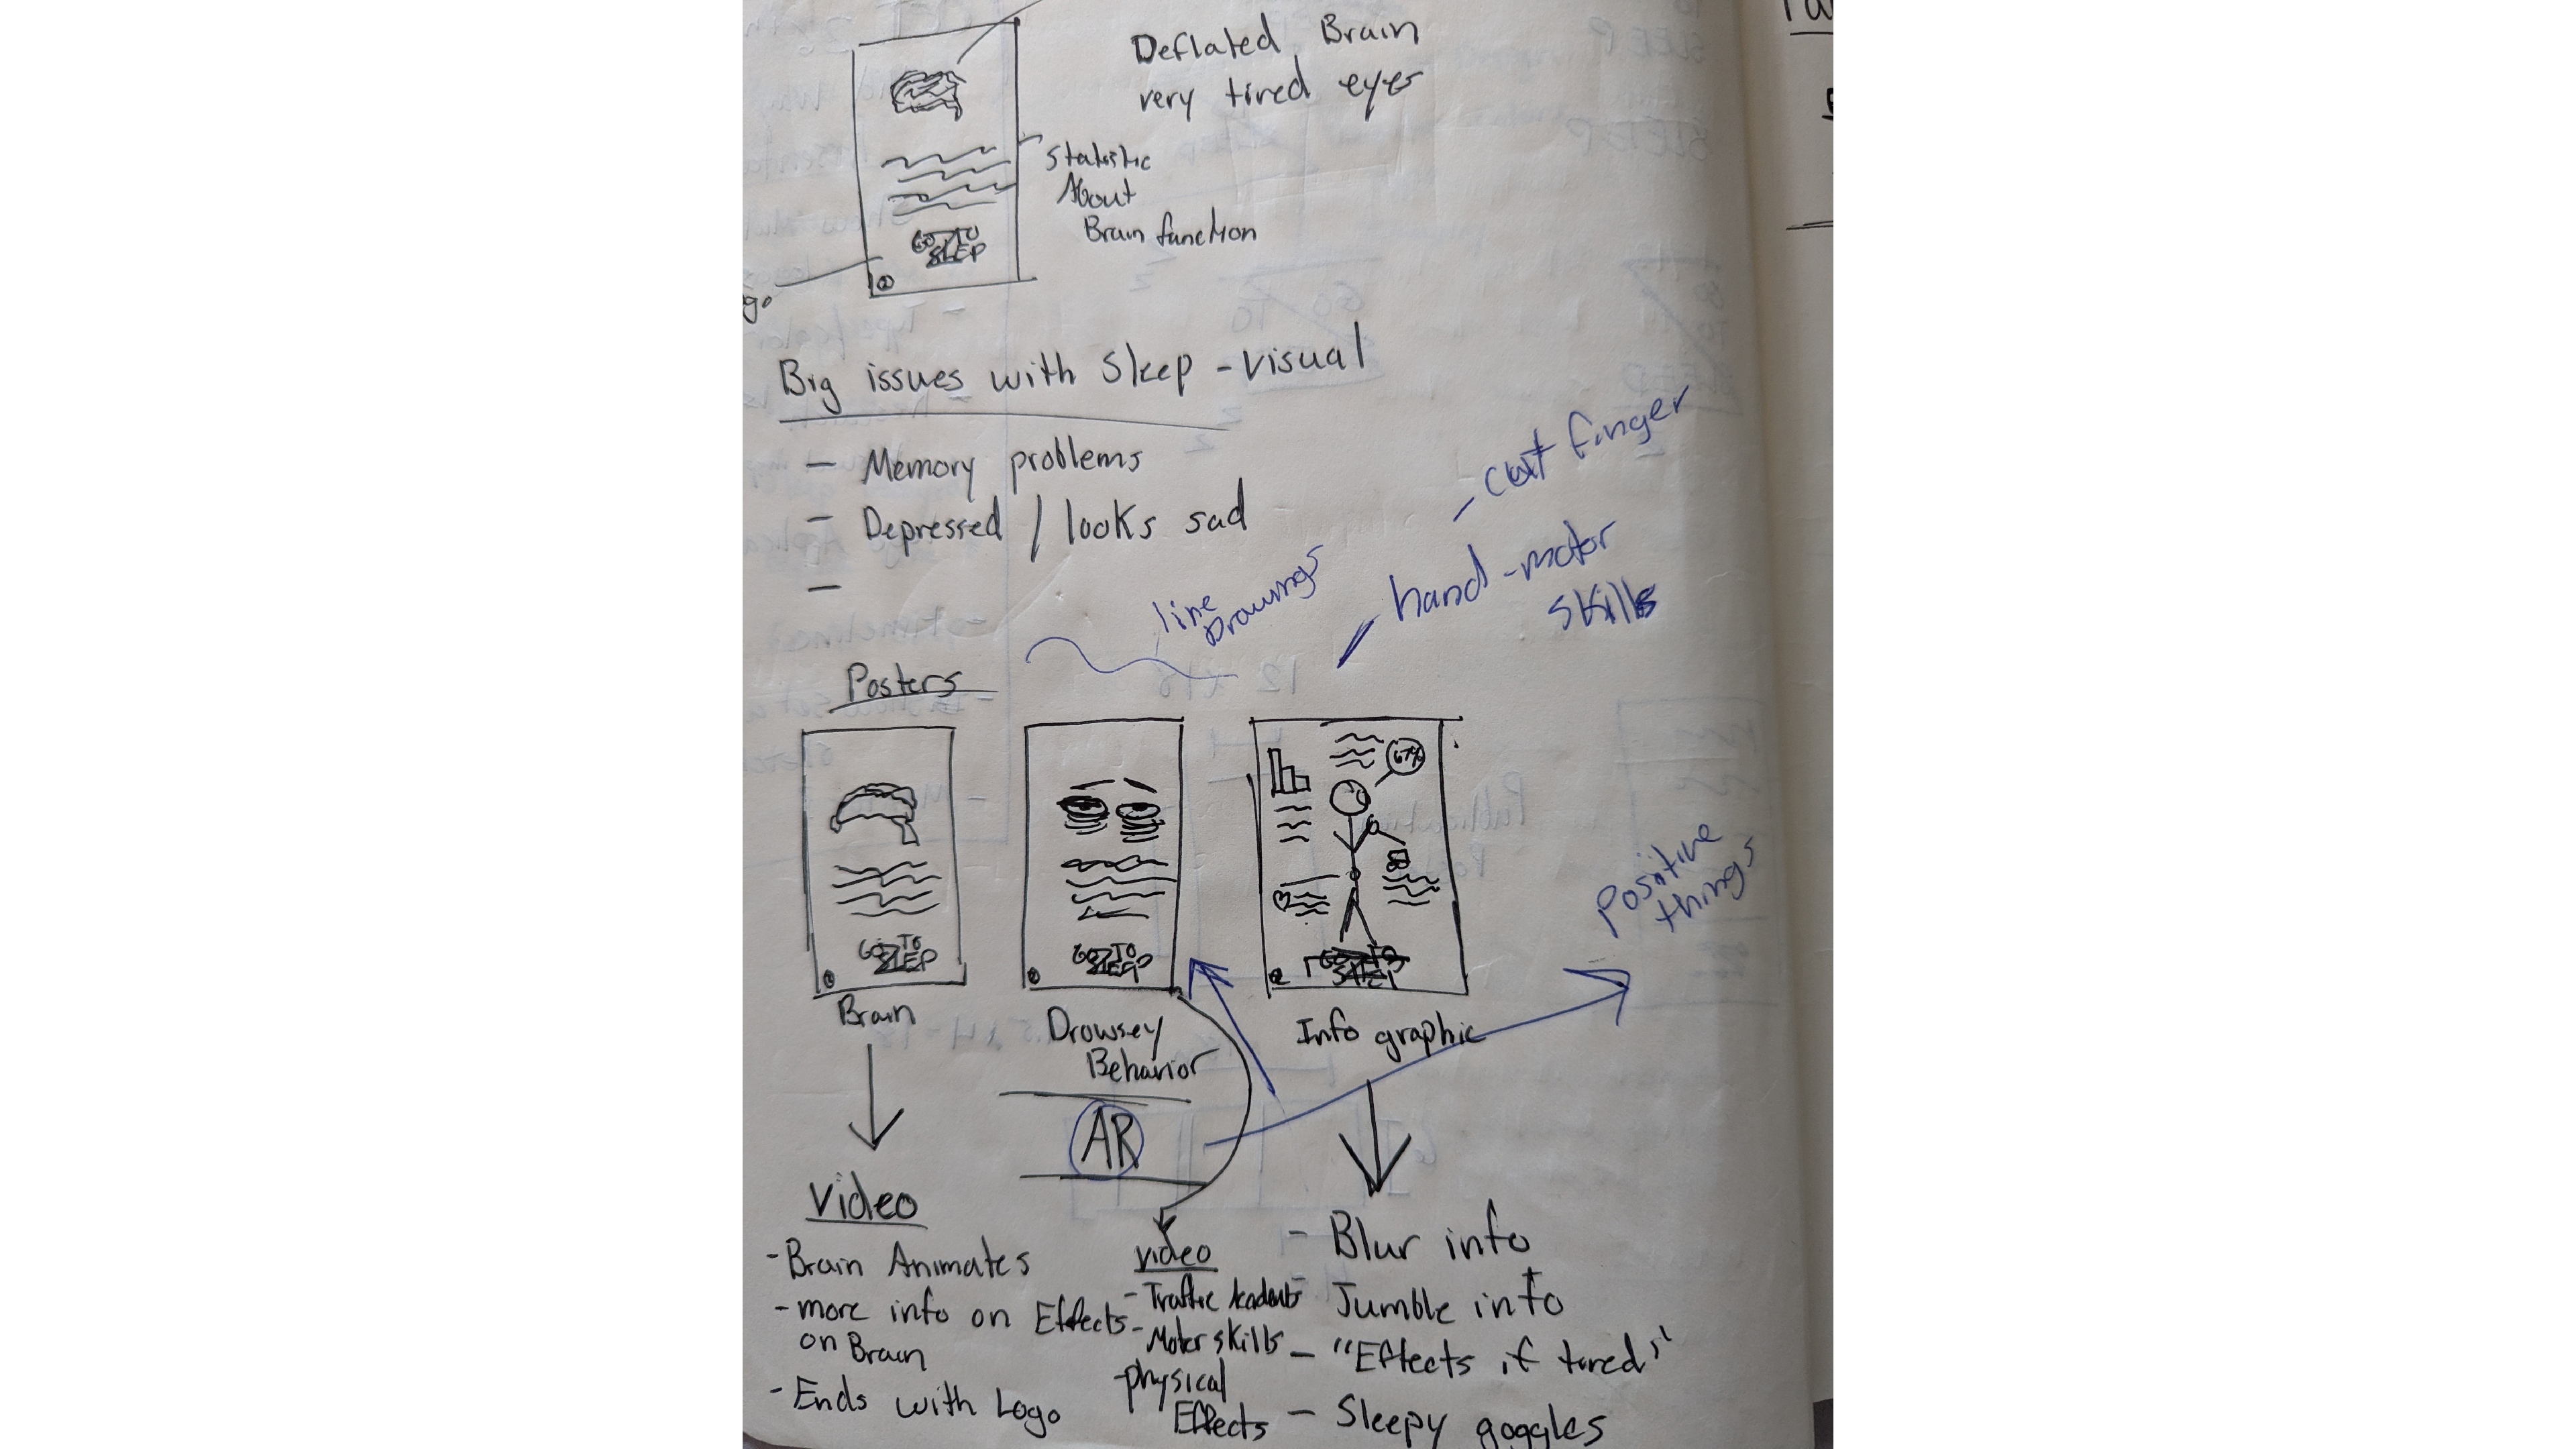 Deflated Brain
very tired eyes
Statistic
About
Brain function
GO TO
SLEEP
go
Big issues with Sleep - visual
- Memory problems
- Depressed / looks sad
-
- cut finger
hand-motor
skills
line
Drawings
Posters
67%
GO TO
SLEEP
GO TO
SLEEP
GO TO
Brain
Drowsey
Behavior
Info graphic
Positive
things
AR
Video
- Brain Animates
- more info on Effects
on Brain
- Ends with Logo
video
- Traffic
- Motor skills
- physical
Effects
- Blur info
- Jumble info
- "Effects if tired"
- Sleepy goggles